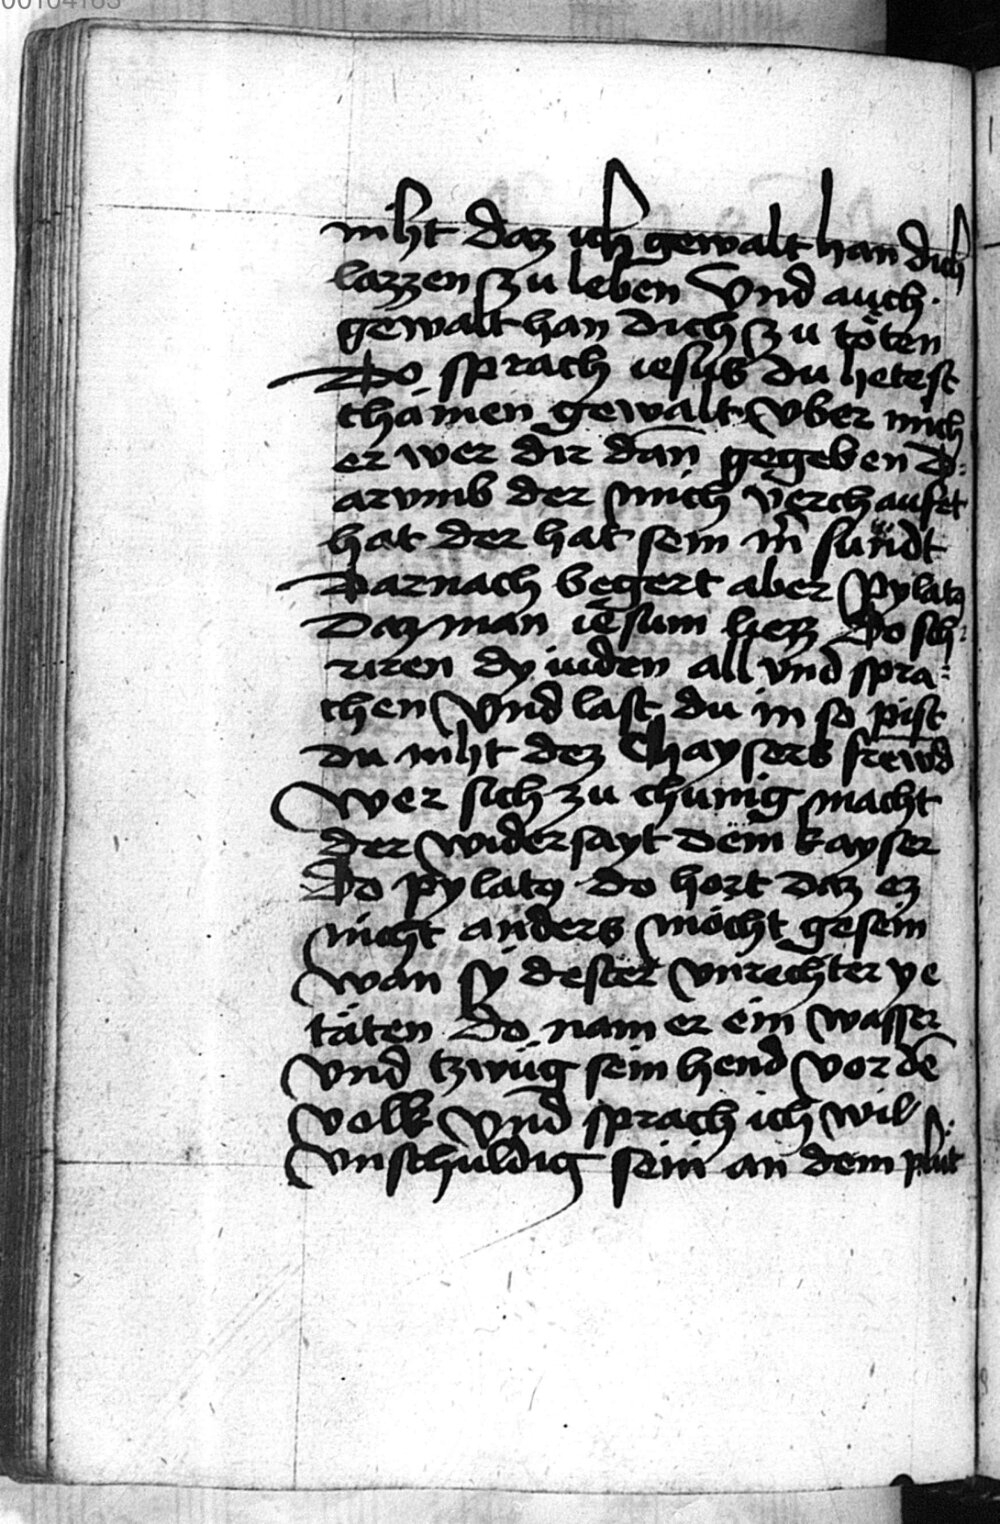 00104183
niht daz ich gewalt han dich
lazzen zu leben Vnd auch
gewalt han dich zu töten
Do sprach iesus du hetest
chainen gewalt vber mich
er wer dir dañ gegeben D:
arvmb der mich verchauffet
hat der hat sein m̄ sündt
Darnach begert aber Pylatꝰ
Daz man iesum liezz Do sch:
riren dy iuden all vnd spra:
chen Vnd last du in so pist
du niht dez Chaysers frewd
Wer sich zu chunig macht
der widersayt dem kayser
Do pylatꝰ do hort daz ez
nicht anders mocht gesein
wan sy dester vnrechter ye
täten Do nam er ein wasser
vnd tzwüg sein hend vor dē
volk vnd sprach ich wil
vnschuldig sein an dem plut